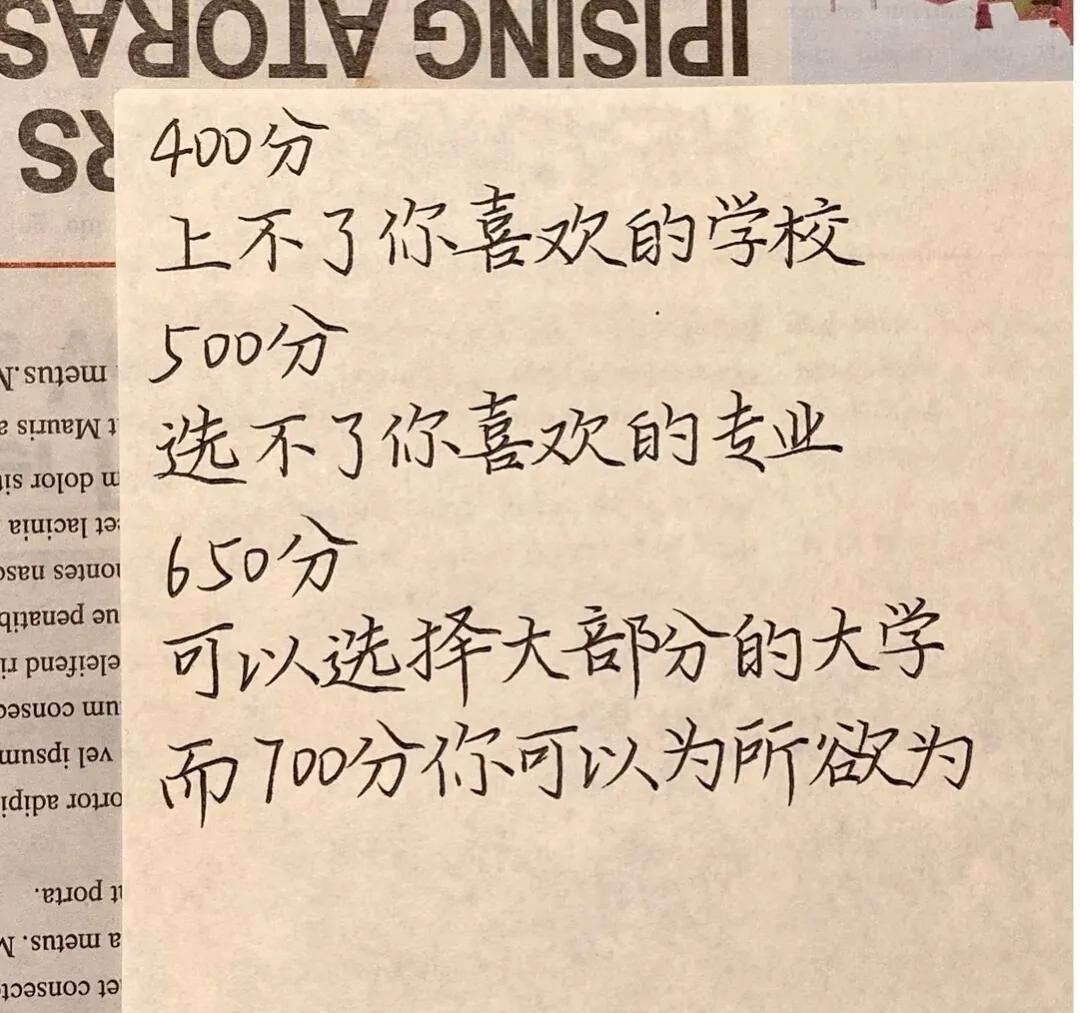 IPISING ATORAS
RS
400分
上不了你喜欢的学校
500分
选不了你喜欢的专业
650分
可以选择大部分的大学
而700分你可以为所欲为
metus.
Mauris
dolor
lacinia
montes
penatib
eleifend
consec
vel ipsum
tortor adipi
porta.
a metus.
consect